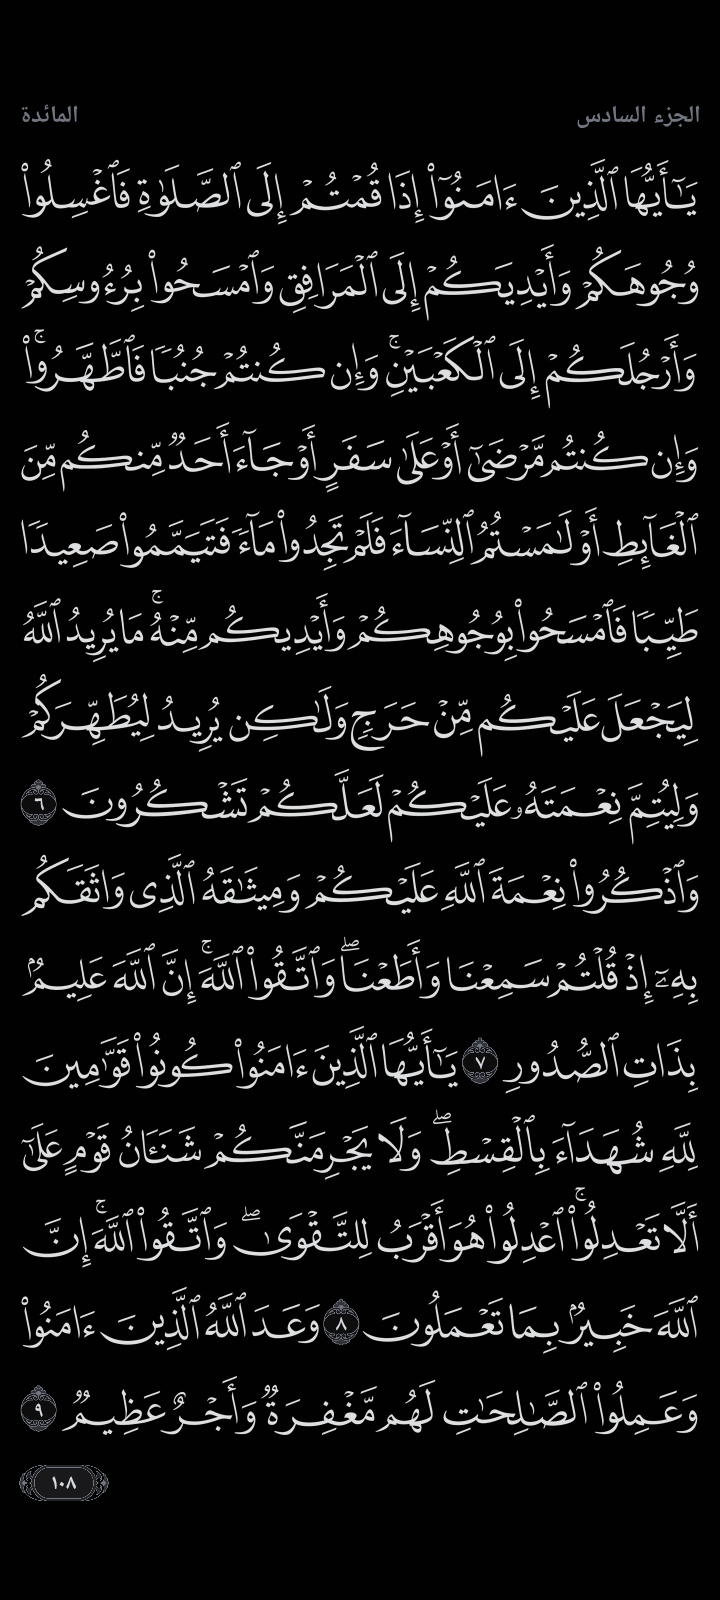 الجزء السادس
المائدة
يَـٰٓأَيُّهَا ٱلَّذِينَ ءَامَنُوٓا۟ إِذَا قُمْتُمْ إِلَى ٱلصَّلَوٰةِ فَٱغْسِلُوا۟
وُجُوهَكُمْ وَأَيْدِيَكُمْ إِلَى ٱلْمَرَافِقِ وَٱمْسَحُوا۟ بِرُءُوسِكُمْ
وَأَرْجُلَكُمْ إِلَى ٱلْكَعْبَيْنِ ۚ وَإِن كُنتُمْ جُنُبًا فَٱطَّهَّرُوا۟ ۚ
وَإِن كُنتُم مَّرْضَىٰٓ أَوْ عَلَىٰ سَفَرٍ أَوْ جَآءَ أَحَدٌ مِّنكُم مِّنَ
ٱلْغَآئِطِ أَوْ لَـٰمَسْتُمُ ٱلنِّسَآءَ فَلَمْ تَجِدُوا۟ مَآءً فَتَيَمَّمُوا۟ صَعِيدًا
طَيِّبًا فَٱمْسَحُوا۟ بِوُجُوهِكُمْ وَأَيْدِيكُم مِّنْهُ ۚ مَا يُرِيدُ ٱللَّهُ
لِيَجْعَلَ عَلَيْكُم مِّنْ حَرَجٍ وَلَـٰكِن يُرِيدُ لِيُطَهِّرَكُمْ
وَلِيُتِمَّ نِعْمَتَهُۥ عَلَيْكُمْ لَعَلَّكُمْ تَشْكُرُونَ ٦
وَٱذْكُرُوا۟ نِعْمَةَ ٱللَّهِ عَلَيْكُمْ وَمِيثَـٰقَهُ ٱلَّذِى وَاثَقَكُم
بِهِۦٓ إِذْ قُلْتُمْ سَمِعْنَا وَأَطَعْنَا ۖ وَٱتَّقُوا۟ ٱللَّهَ ۚ إِنَّ ٱللَّهَ عَلِيمٌۢ
بِذَاتِ ٱلصُّدُورِ ٧ يَـٰٓأَيُّهَا ٱلَّذِينَ ءَامَنُوا۟ كُونُوا۟ قَوَّٰمِينَ
لِلَّهِ شُهَدَآءَ بِٱلْقِسْطِ ۖ وَلَا يَجْرِمَنَّكُمْ شَنَـَٔانُ قَوْمٍ عَلَىٰٓ
أَلَّا تَعْدِلُوا۟ ۚ ٱعْدِلُوا۟ هُوَ أَقْرَبُ لِلتَّقْوَىٰ ۖ وَٱتَّقُوا۟ ٱللَّهَ ۚ إِنَّ
ٱللَّهَ خَبِيرٌۢ بِمَا تَعْمَلُونَ ٨ وَعَدَ ٱللَّهُ ٱلَّذِينَ ءَامَنُوا۟
وَعَمِلُوا۟ ٱلصَّـٰلِحَـٰتِ لَهُم مَّغْفِرَةٌ وَأَجْرٌ عَظِيمٌ ٩
١٠٨